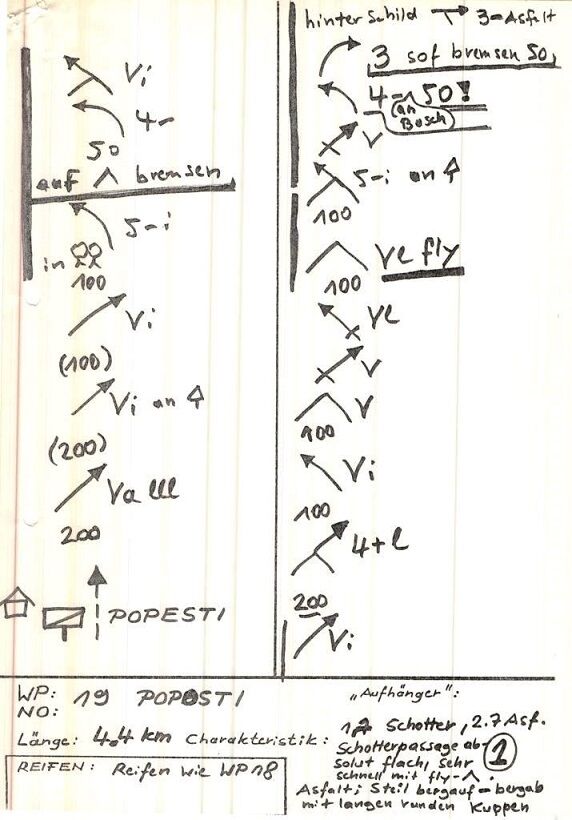 Vi
4-
50
auf bremsen
5-i
in
100
Vi
(100)
Vi an
(200)
Va lll
200
POPESTI
hinter Schild 3-Asfalt
3 sof bremsen 50,
4- 50!
an
Busch
V
5-i an
100
Ve fly
100
Ve
V
V
100
Vi
100
4+l
200
Vi
WP: 19 POPESTI
NO:
Länge: 4.4 km Charakteristik:
REIFEN: Reifen wie WP 18
„Aufhänger":
Schotter, 2.7 Asf.
Schotterpassage ab-
solut flach, sehr
schnell mit fly-
1
Asfalt; Steil bergauf - bergab
mit langen runden Kuppen